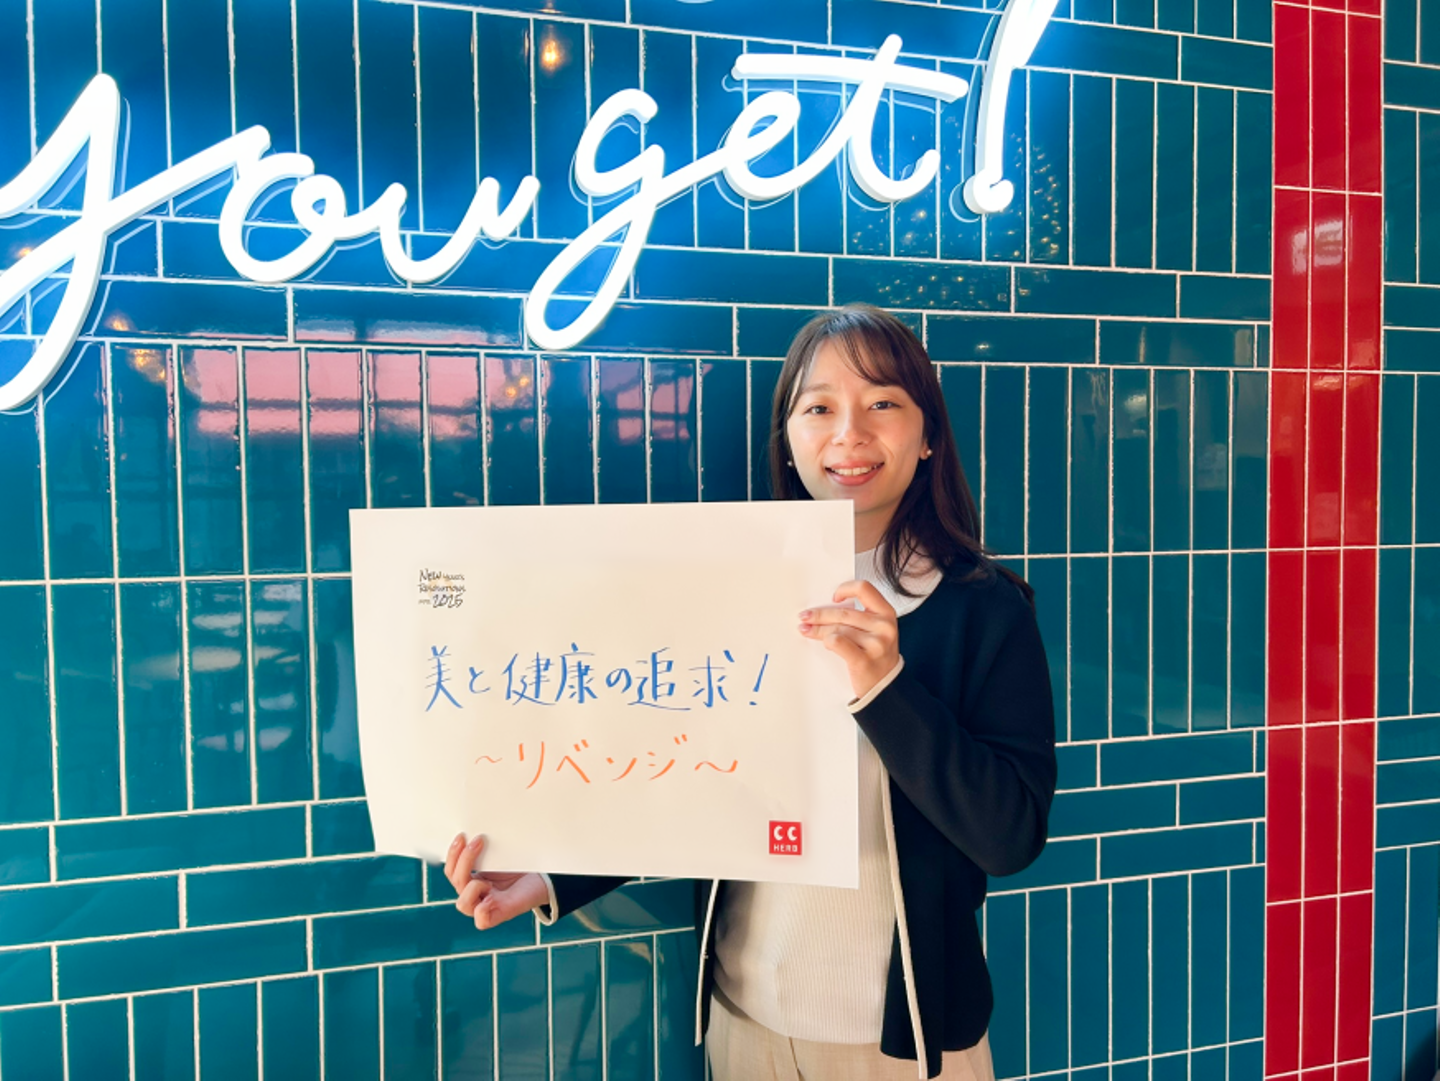 you get!
NEW YEAR'S
RESOLUTIONS
2025
美と健康の追求！
〜リベンジ〜
CC
HERO